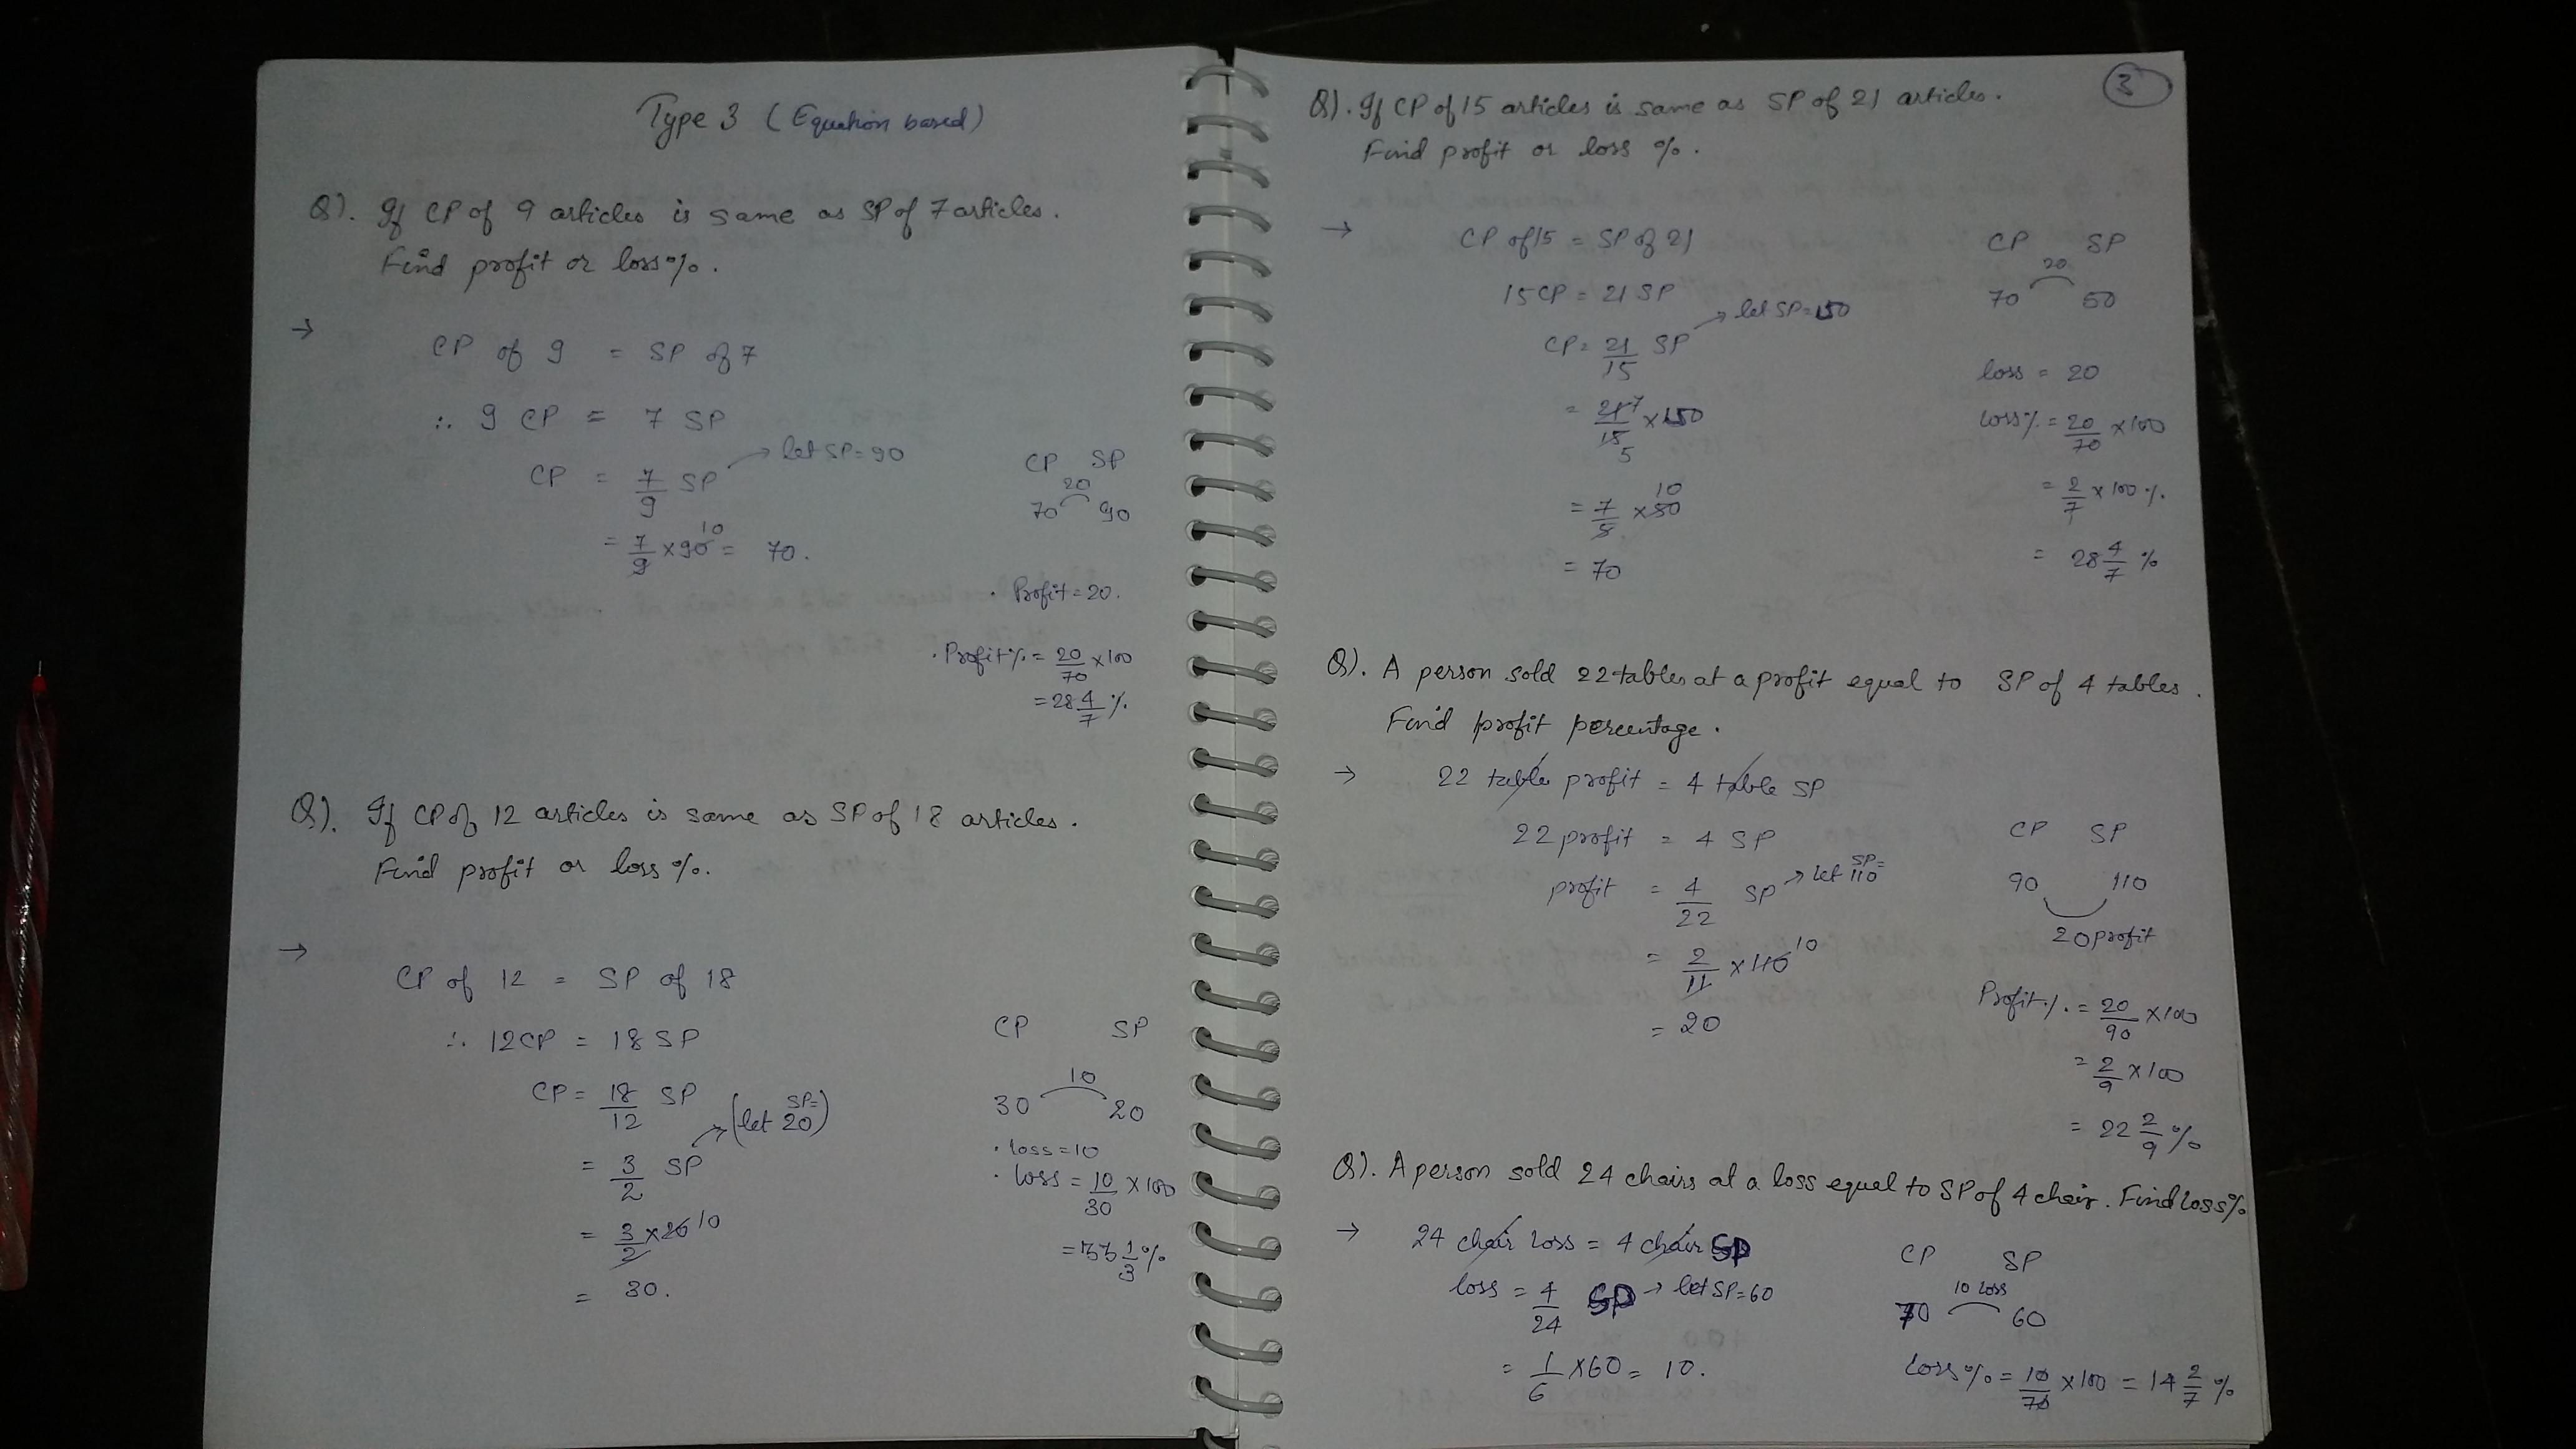 Type 3 (Equation based)
Q). If CP of 9 articles is same as SP of 7 articles.
Find profit or loss%.
→
CP of 9 = SP of 7
∴ 9 CP = 7 SP
CP = 7/9 SP → let SP=90
= 7/9 × 90 10 = 70.
CP SP
20
70 90
· Profit = 20.
· Profit% = 20/70 × 100
= 28 4/7 %
Q). If CP of 12 articles is same as SP of 18 articles.
Find profit or loss %.
→
CP of 12 = SP of 18
∴ 12CP = 18 SP
CP = 18/12 SP
= 3/2 SP → (let SP= 20)
= 3/2 × 20 10
= 30.
CP SP
10
30 20
· loss = 10
· loss = 10/30 × 100
= 33 1/3 %
3
Q). If CP of 15 articles is same as SP of 21 articles.
Find profit or loss %.
→ CP of 15 = SP of 21
15 CP = 21 SP
CP = 21/15 SP → let SP=150
= 21 7/15 5 × 150
= 7/5 × 50 10
= 70
CP SP
20
70 50
loss = 20
loss% = 20/70 × 100
= 2/7 × 100 %
= 28 4/7 %
Q). A person sold 22 tables at a profit equal to SP of 4 tables.
Find profit percentage.
→ 22 table profit = 4 table SP
22 profit = 4 SP
profit = 4/22 SP → let SP= 110
= 2/11 × 110 10
= 20
CP SP
90 110
20 profit
Profit% = 20/90 × 100
= 2/9 × 100
= 22 2/9 %
Q). A person sold 24 chairs at a loss equal to SP of 4 chair. Find loss%
→ 24 chair loss = 4 chair SP
loss = 4/24 SP → let SP=60
= 1/6 × 60 = 10.
CP SP
10 loss
70 60
loss% = 10/70 × 100 = 14 2/7 %